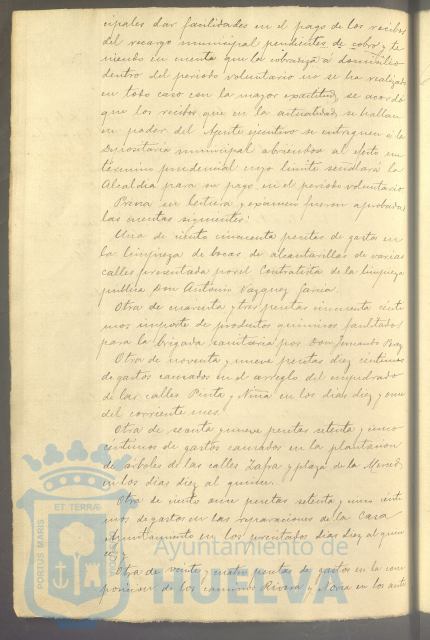 cipales dar facilidades en el pago de los recibos
del recargo municipal pendientes de cobro y te
niendo en cuenta que la cobranza á domicilio
dentro del periodo voluntario no se ha realizado
en todo caso con la mayor exactitud, se acordó
que los recibos que en la actualidad se hallan
en poder del Agente ejecutivo se entreguen á la
Depositaría municipal abriendose al efecto un
término prudencial cuyo limite señalará la
Alcaldia para su pago en el periodo voluntario
Previa su lectura y examen fueron aprobadas
las cuentas siguientes:
Una de ciento cincuenta pesetas de gasto en
la limpieza de bocas de alcantarillas de varias
calles presentada por el Contratista de la limpieza
publica Don Antonio Vazquez Garcia.
Otra de cuarenta y tres pesetas cincuenta cénti
mos importe de productos quimicos facilitados
para la brigada sanitaria por Don Fernando
Otra de noventa y nueve pesetas diez centimos
de gastos causados en el arreglo del empedrado
de las calles Pinta y Niña en los dias diez y once
del corriente mes.
Otra de sesenta y nueve pesetas setenta y cinco
céntimos de gastos causados en la plantacion
de árboles de las calles Zafra y plaza de la Merced
en los dias diez al quince.
Otra de ciento once pesetas setenta y cinco cénti
mos de gastos en las reparaciones de la Casa
Ayuntamiento en los dias diez al quin
ce.
Otra de veinte y cuatro pesetas de gastos en la com
posicion de los caminos Rivera y Noria en los
ET TERRÆ
PORTUS MARIS
Ayuntamiento de
HUELVA